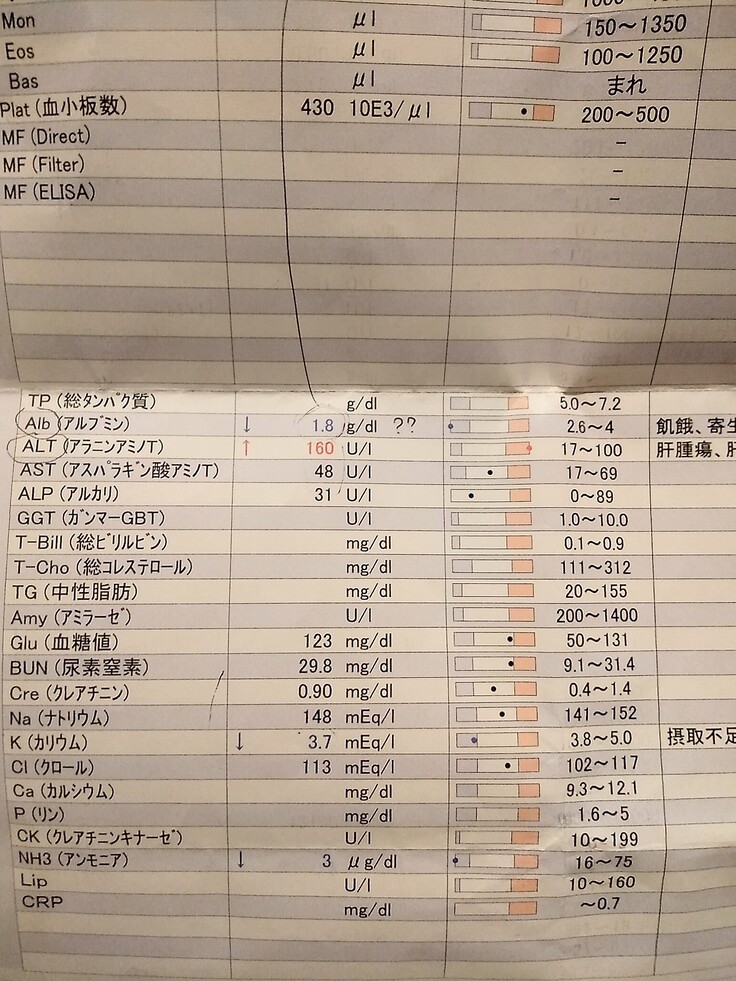 Mon μl 150～1350
Eos μl 100～1250
Bas μl まれ
Plat (血小板数) 430 10E3/μl 200～500
MF (Direct) -
MF (Filter) -
MF (ELISA) -
TP (総ﾀﾝﾊﾟｸ質) g/dl 5.0～7.2
Alb (ｱﾙﾌﾞﾐﾝ) ↓ 1.8 g/dl ?? 2.6～4 飢餓、寄生
ALT (ｱﾗﾆﾝｱﾐﾉT) ↑ 160 U/l 17～100 肝腫瘍、肝
AST (ｱｽﾊﾟﾗｷﾞﾝ酸ｱﾐﾉT) 48 U/l 17～69
ALP (ｱﾙｶﾘ) 31 U/l 0～89
GGT (ｶﾞﾝﾏｰGBT) U/l 1.0～10.0
T-Bill (総ﾋﾞﾘﾙﾋﾞﾝ) mg/dl 0.1～0.9
T-Cho (総ｺﾚｽﾃﾛｰﾙ) mg/dl 111～312
TG (中性脂肪) mg/dl 20～155
Amy (ｱﾐﾗｰｾﾞ) U/l 200～1400
Glu (血糖値) 123 mg/dl 50～131
BUN (尿素窒素) 29.8 mg/dl 9.1～31.4
Cre (ｸﾚｱﾁﾆﾝ) 0.90 mg/dl 0.4～1.4
Na (ﾅﾄﾘｳﾑ) 148 mEq/l 141～152
K (ｶﾘｳﾑ) ↓ 3.7 mEq/l 3.8～5.0 摂取不足
Cl (ｸﾛｰﾙ) 113 mEq/l 102～117
Ca (ｶﾙｼｳﾑ) mg/dl 9.3～12.1
P (ﾘﾝ) mg/dl 1.6～5
CK (ｸﾚｱﾁﾝｷﾅｰｾﾞ) U/l 10～199
NH3 (ｱﾝﾓﾆｱ) ↓ 3 μg/dl 16～75
Lip U/l 10～160
CRP mg/dl ～0.7